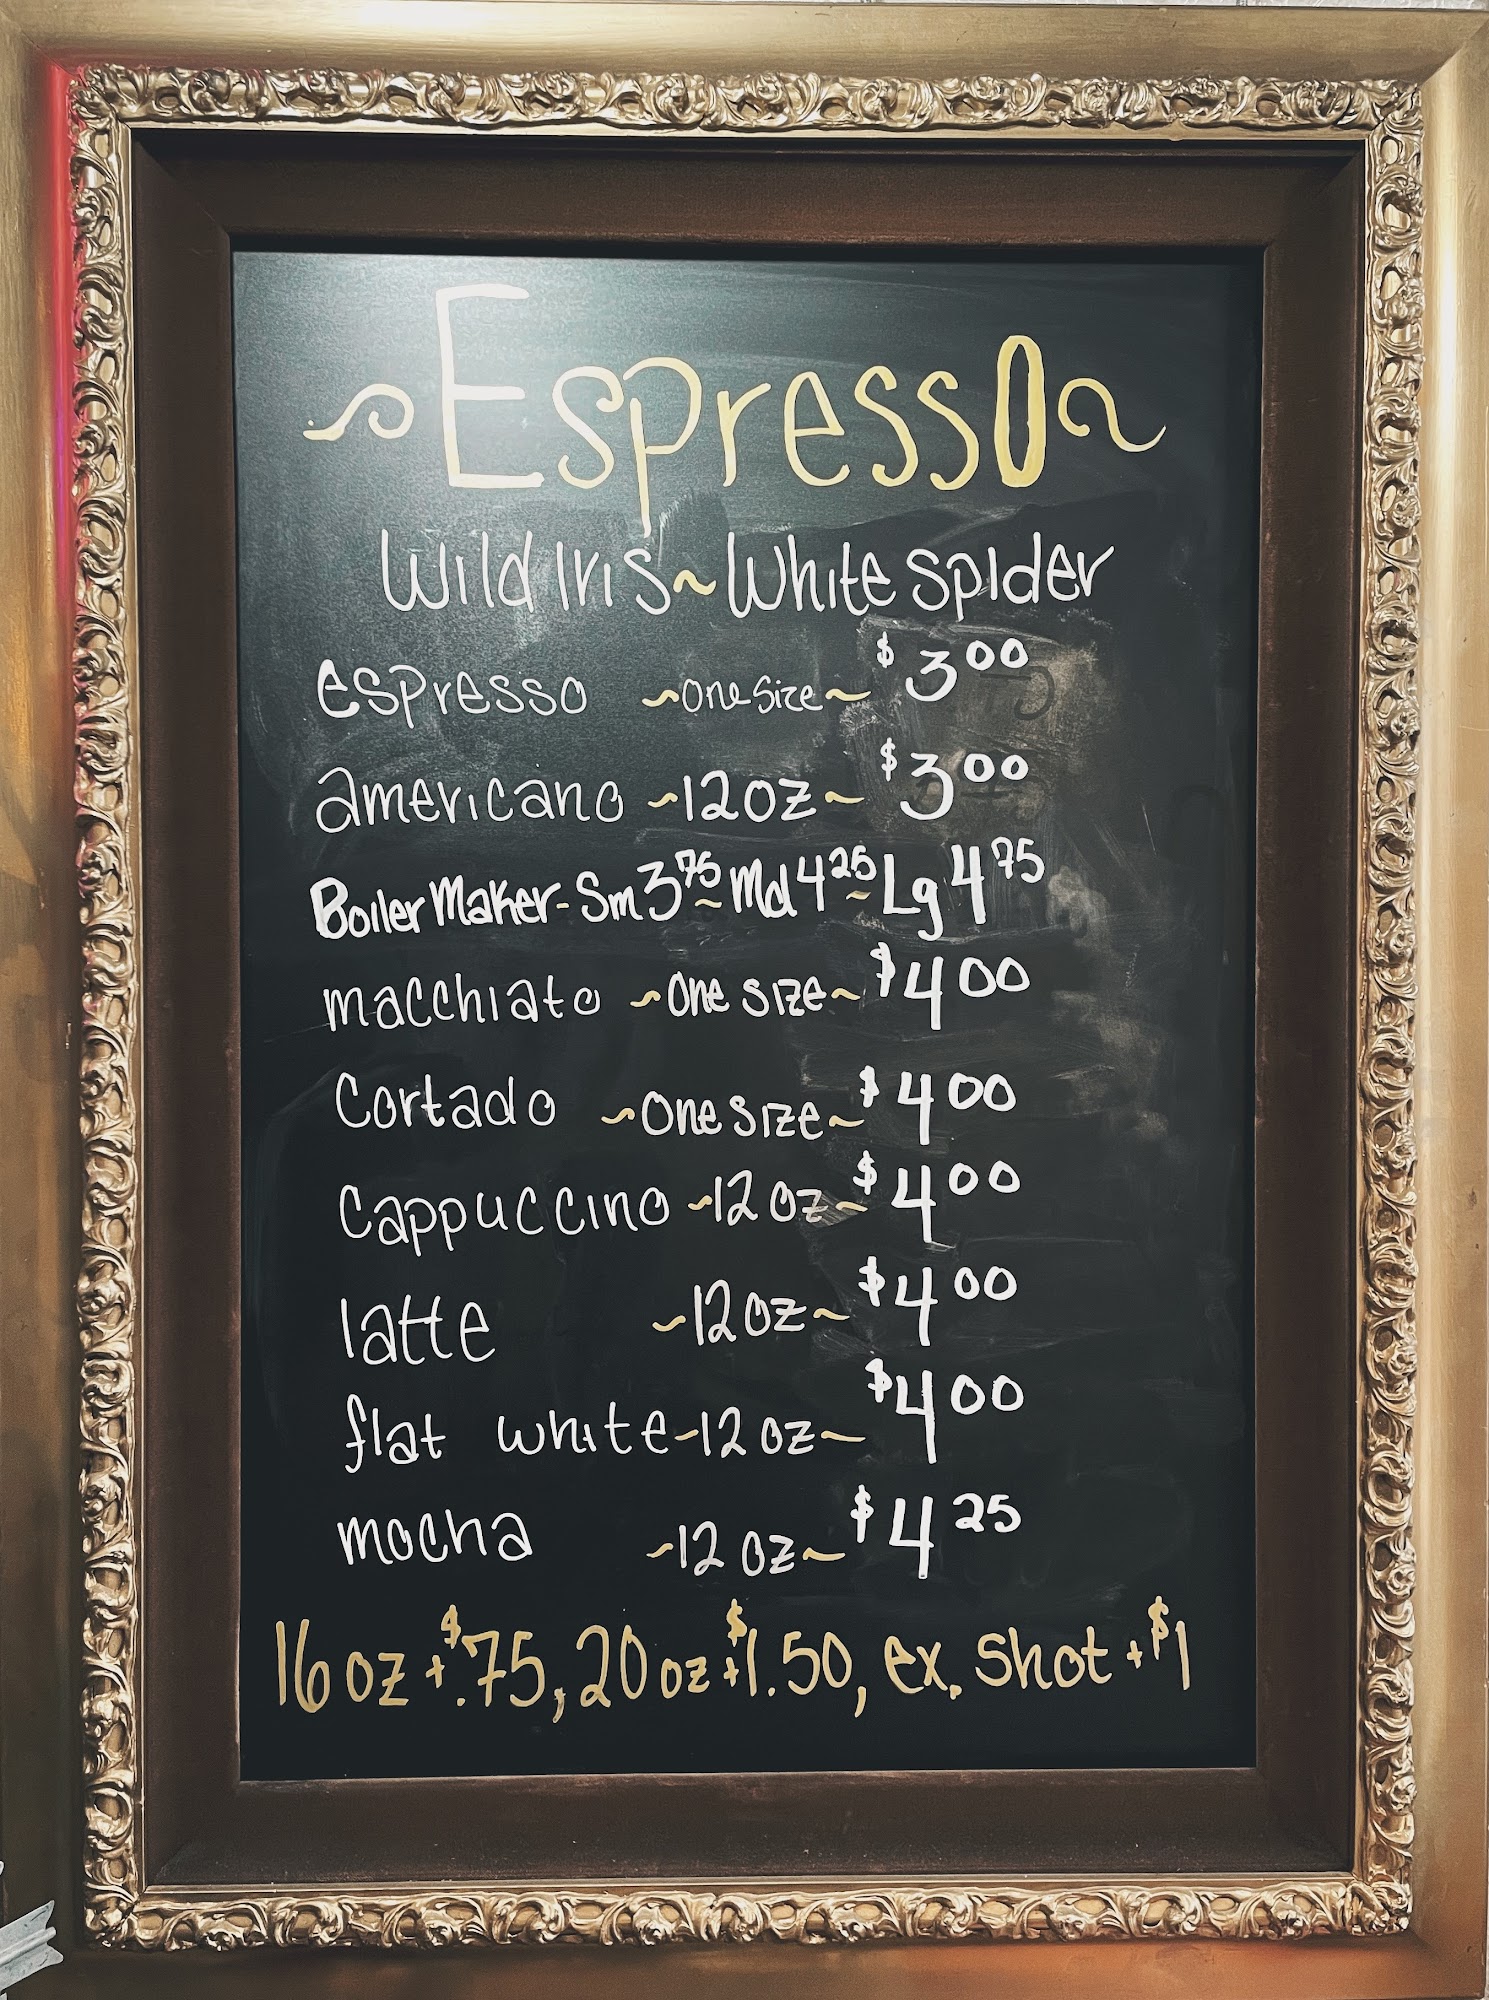 ~Espresso~
Wild Iris~White Spider
espresso ~One Size~ $3.00
americano ~12oz~ $3.00
Boiler Maker-Sm 3.75~Md 4.25~Lg 4.75
macchiato ~One size~ $4.00
Cortado ~One size~ $4.00
Cappuccino ~12oz~ $4.00
latte ~12oz~ $4.00
flat white~12oz~ $4.00
mocha ~12oz~ $4.25
16oz+$.75, 20oz+$1.50, ex. Shot+$1